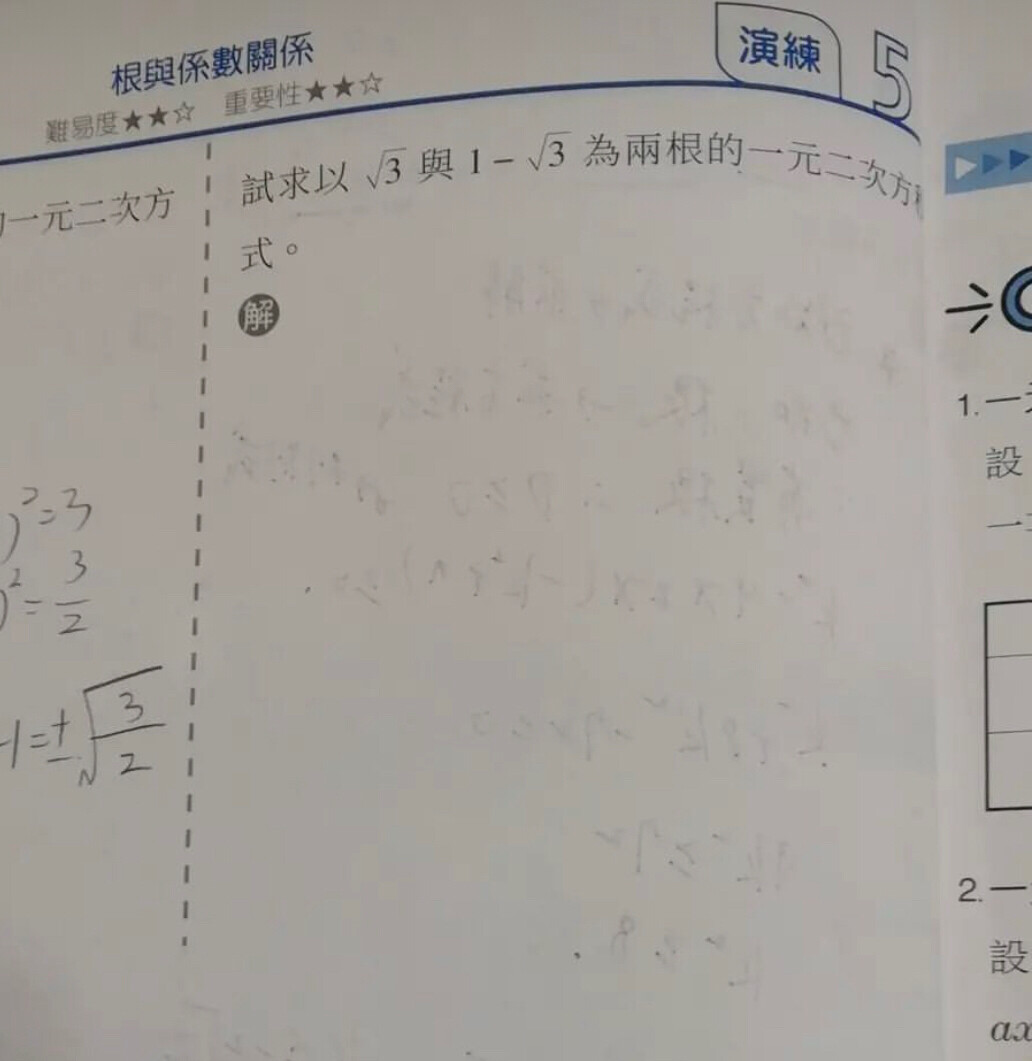 根與係數關係
難易度★★☆ 重要性★★☆
演練 5
一元二次方
)²=3
)²=3/2
-1=±√(3/2)
試求以 √3 與 1 − √3 為兩根的一元二次方
式。
解
1. 一
設
一
2. 一
設
ax